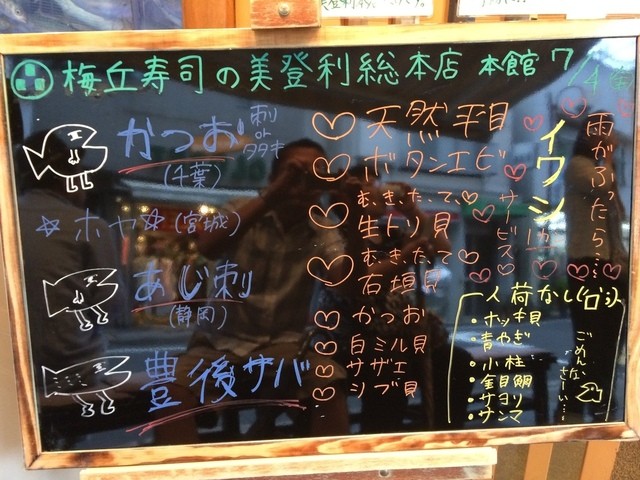 梅丘寿司の美登利総本店 本館 7/4
かつお 刺 or タタキ
(千葉)
ホヤ (宮城)
あじ刺
(静岡)
豊後サバ
天然平目
ボタンエビ
むきたて
生トリ貝
むきたて
石垣貝
かつお
白ミル貝
サザエ
シブ貝
雨がふったら…
イワシ
1カン
サービス
入荷なし(ロ)
・ホッキ貝
・青やぎ
・小柱
・金目鯛
・サヨリ
・サンマ
ごめんな
さーい…